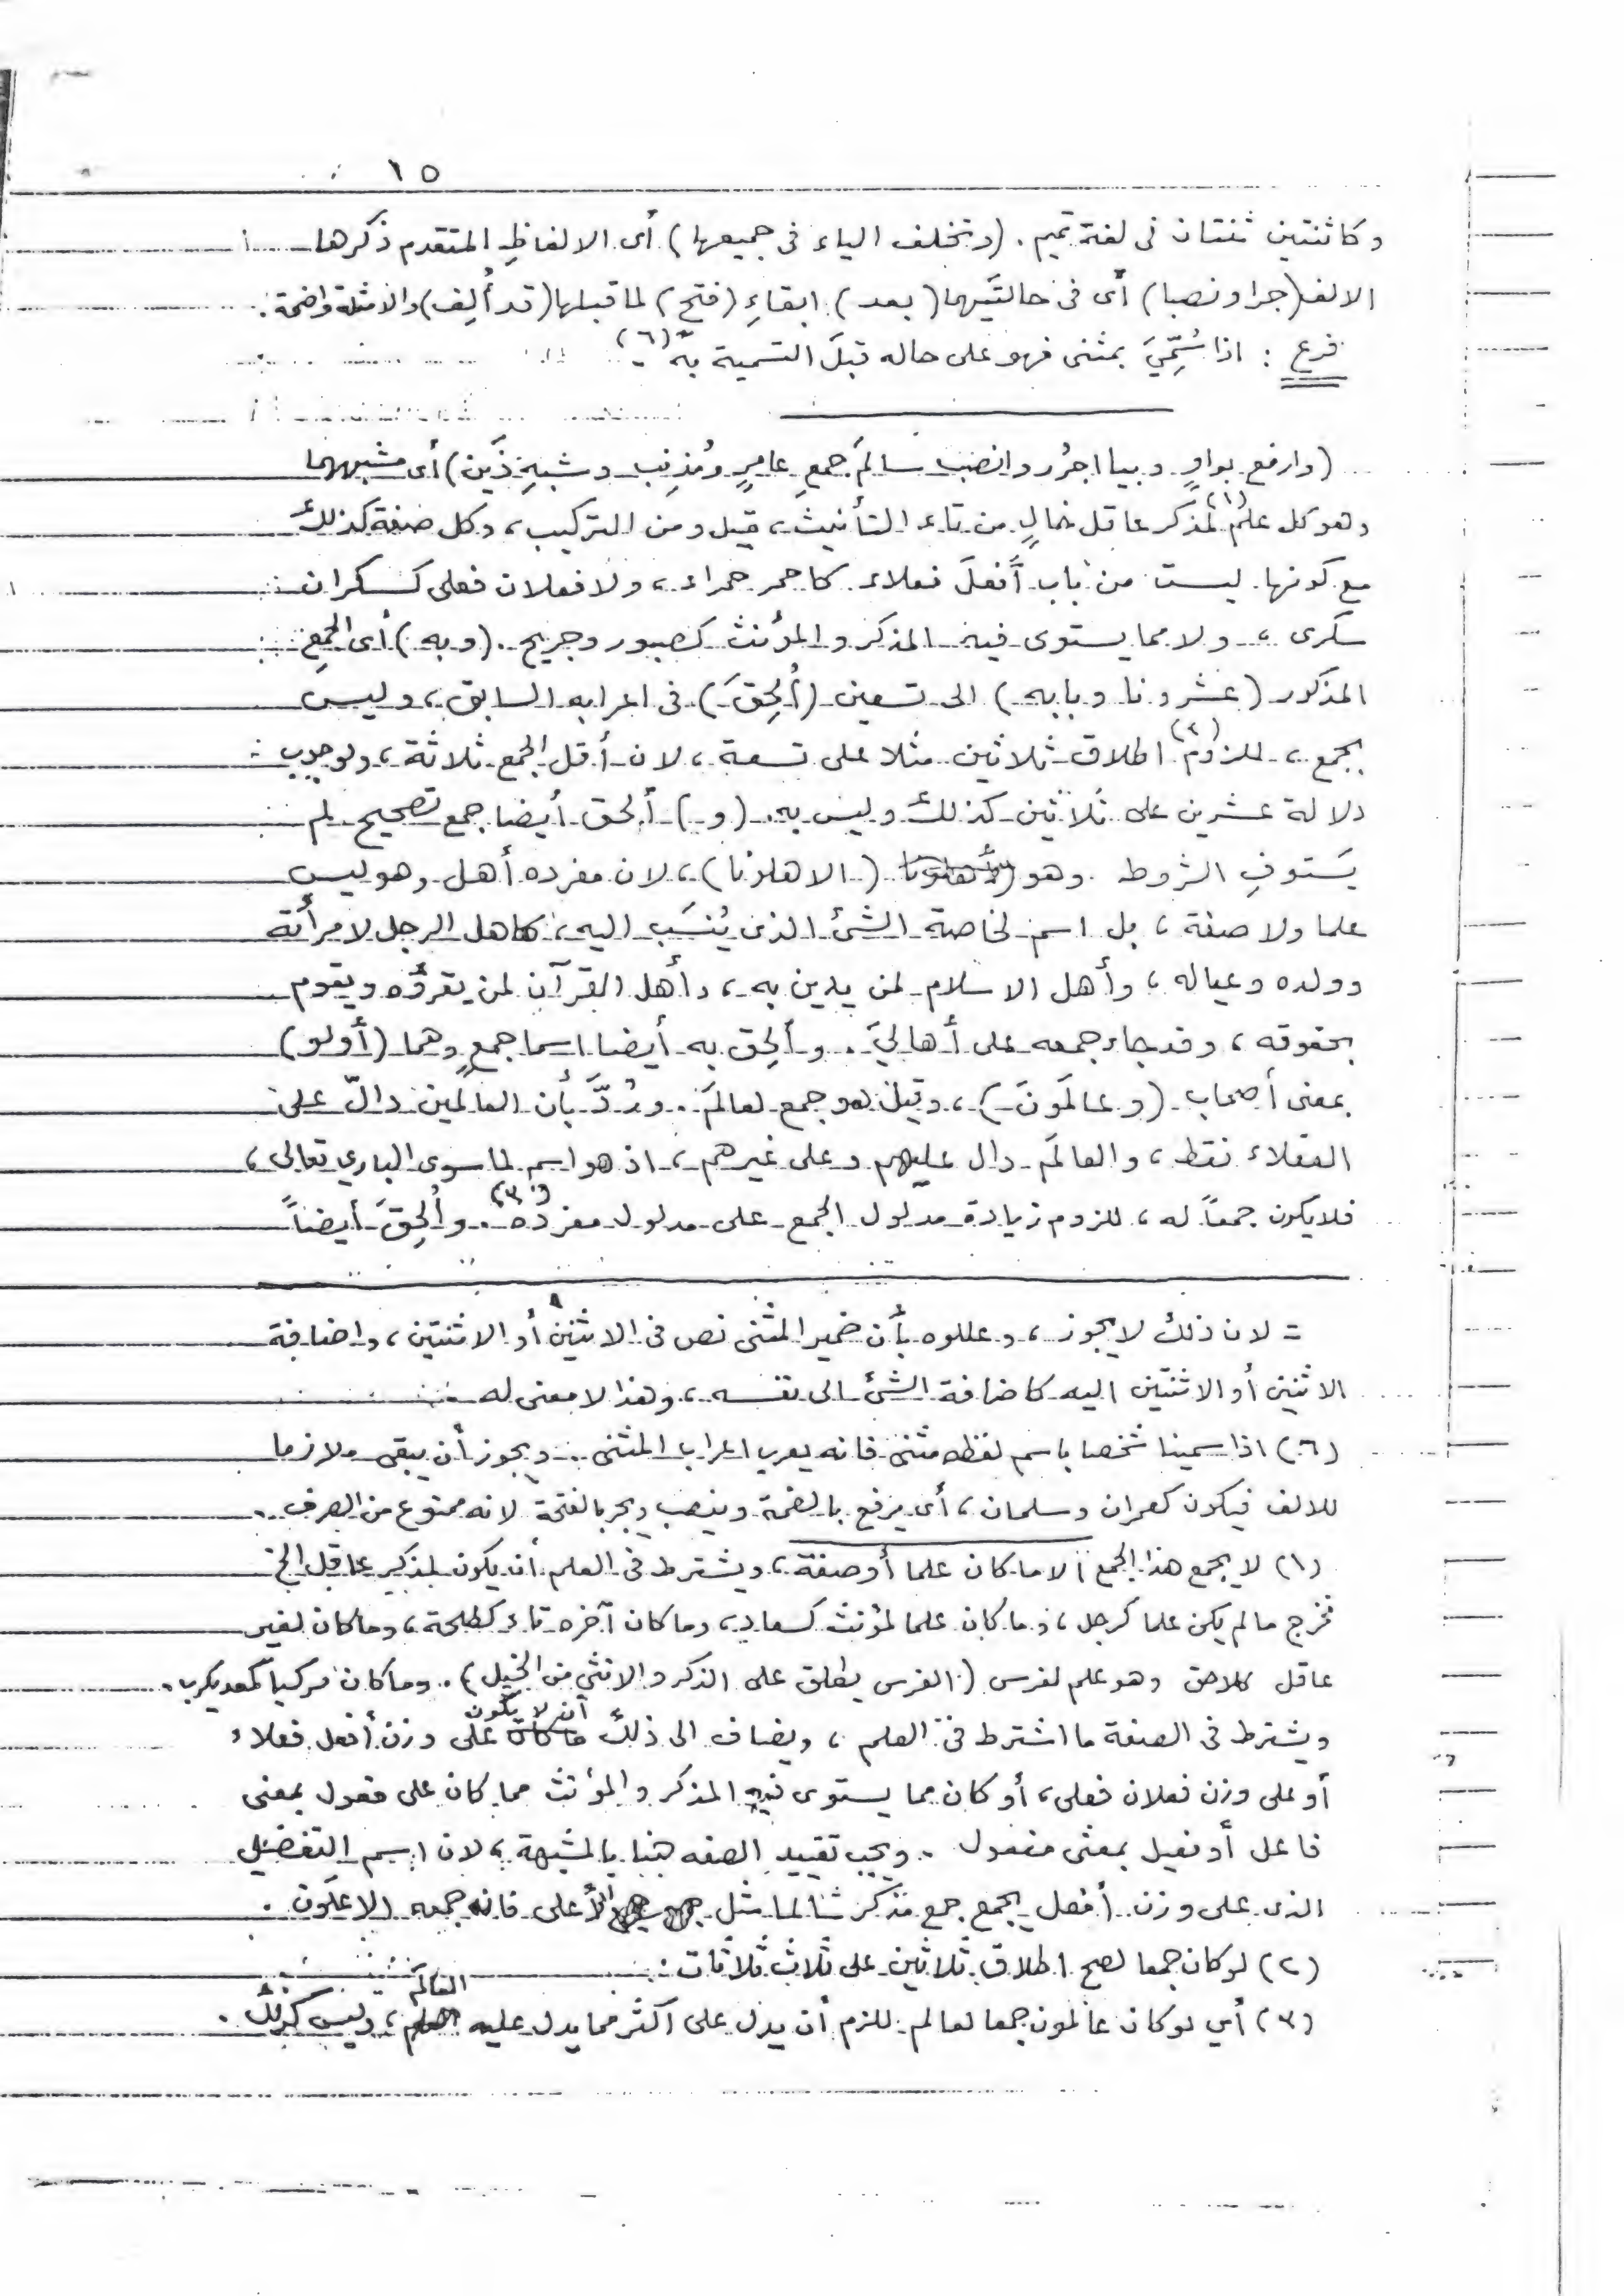 ١٥
وكاثنتين ثنتان في لغة تميم . (وتخلف الياء في جميعها) أى الالفاظِ المتقدم ذكرها
الالف (جرا ونصبا) أى فى حالتَيها (بعد) ابقاءِ (فتح) لما قبلها (قد أُلِف) والامثلة واضحة .
فرع : اذا سُمِّيَ بمثنى فهو على حاله قبلَ التسمية به (٦) .
(وارفع بواوٍ وبيا اجرُر وانصب سالمَ جمعِ عامرٍ ومُذنِب وشبهِ ذَين) أى مشبههما
وهو كل علم (١) لمذكر عاقل خالٍ من تاء التأنيث ، قيل ومن التركيب ، وكل صفة كذلك
مع كونها ليست من باب أَفعلَ فعلاء كاحمر حمراء ، ولا فعلان فعلى كسكران
سكرى ، ولا مما يستوى فيه المذكر والمؤنث كصبور وجريح . (وبه) أى الجمعِ
المذكور (عشرونا وبابه) الى تسعين (أُلحِقَ) فى اعرابه السابق ، وليس
بجمع ، للزوم (٢) اطلاق ثلاثين مثلا على تسعة ، لان أقل الجمع ثلاثة ، ولوجوب
دلالة عشرين على ثلاثين كذلك وليس به . (و) أُلحق أيضا جمع تصحيح لم
يَستوفِ الشروط وهو (الاهلونا) ، لان مفرده أهل وهو ليس
علما ولا صفة ، بل اسم لخاصة الشئ الذى يُنسَب اليه ، كاهل الرجل لامرأته
وولده وعياله ، وأهل الاسلام لمن يدين به ، وأهل القرآن لمن يقرؤه ويقوم
بحقوقه ، وقد جاء جمعه على أهاليَ . وأُلحِق به أيضا اسما جمعٍ وهما (أولو)
بمعنى أصحاب (وعالَمونَ) ، وقيل هو جمع لعالَم . ورُدَّ بأن العالَمين دالّ على
العقلاء فقط ، والعالَم دال عليهم وعلى غيرهم ، اذ هو اسم لما سوى البارى تعالى ،
فلا يكون جمعاً له ، للزوم زيادة مدلول الجمع على مدلول مفرده (٣) . وأُلحِقَ أيضاً
= لان ذلك لا يجوز ، وعللوه بأن ضمير المثنى نص فى الاثنين أو الاثنتين ، واضافة
الاثنين أو الاثنتين اليه كاضافة الشئ الى نفسه ، وهذا لا معنى له
(٦) اذا سمينا شخصا باسم لفظه مثنى فانه يعرب اعراب المثنى . ويجوز أن يبقى ملازما
للالف فيكون كعمران وسلمان ، أى يرفع بالضمة وينصب ويجر بالفتحة لانه ممنوع من الصرف .
(١) لا يجمع هذا الجمع الا ما كان علما أو صفة ، ويشترط فى العلم أن يكون لمذكر عاقل الخ
فخرج ما لم يكن علما كرجل ، وما كان علما لمؤنث كسعاد ، وما كان آخره تاء كطلحة ، وما كان لغير
عاقل كلاحق وهو علم لفرس (الفرس يطلق على الذكر والانثى من الخيل) . وما كان مركبا كمعديكرب .
ويشترط فى الصفة ما اشترط فى العلم ، ويضاف الى ذلك أن لا يكون على وزن أفعل فعلاء
أو على وزن فعلان فعلى ، أو كان مما يستوى فيه المذكر والمؤنث مما كان على فعول بمعنى
فاعل أو فعيل بمعنى مفعول . ويجب تقييد الصفه هنا بالمشبهة ، لان اسم التفضيل
الذى على وزن أفعل يجمع جمع مذكر سالما مثل الأعلى فانه جمعه الاعلَون .
(٢) لو كان جمعا لصح اطلاق ثلاثين على ثلاث ثلاثات .
(٣) أي لو كان عالمون جمعا لعالم للزم أن يدل على أكثر مما يدل عليه العالَم ، وليس كذلك .